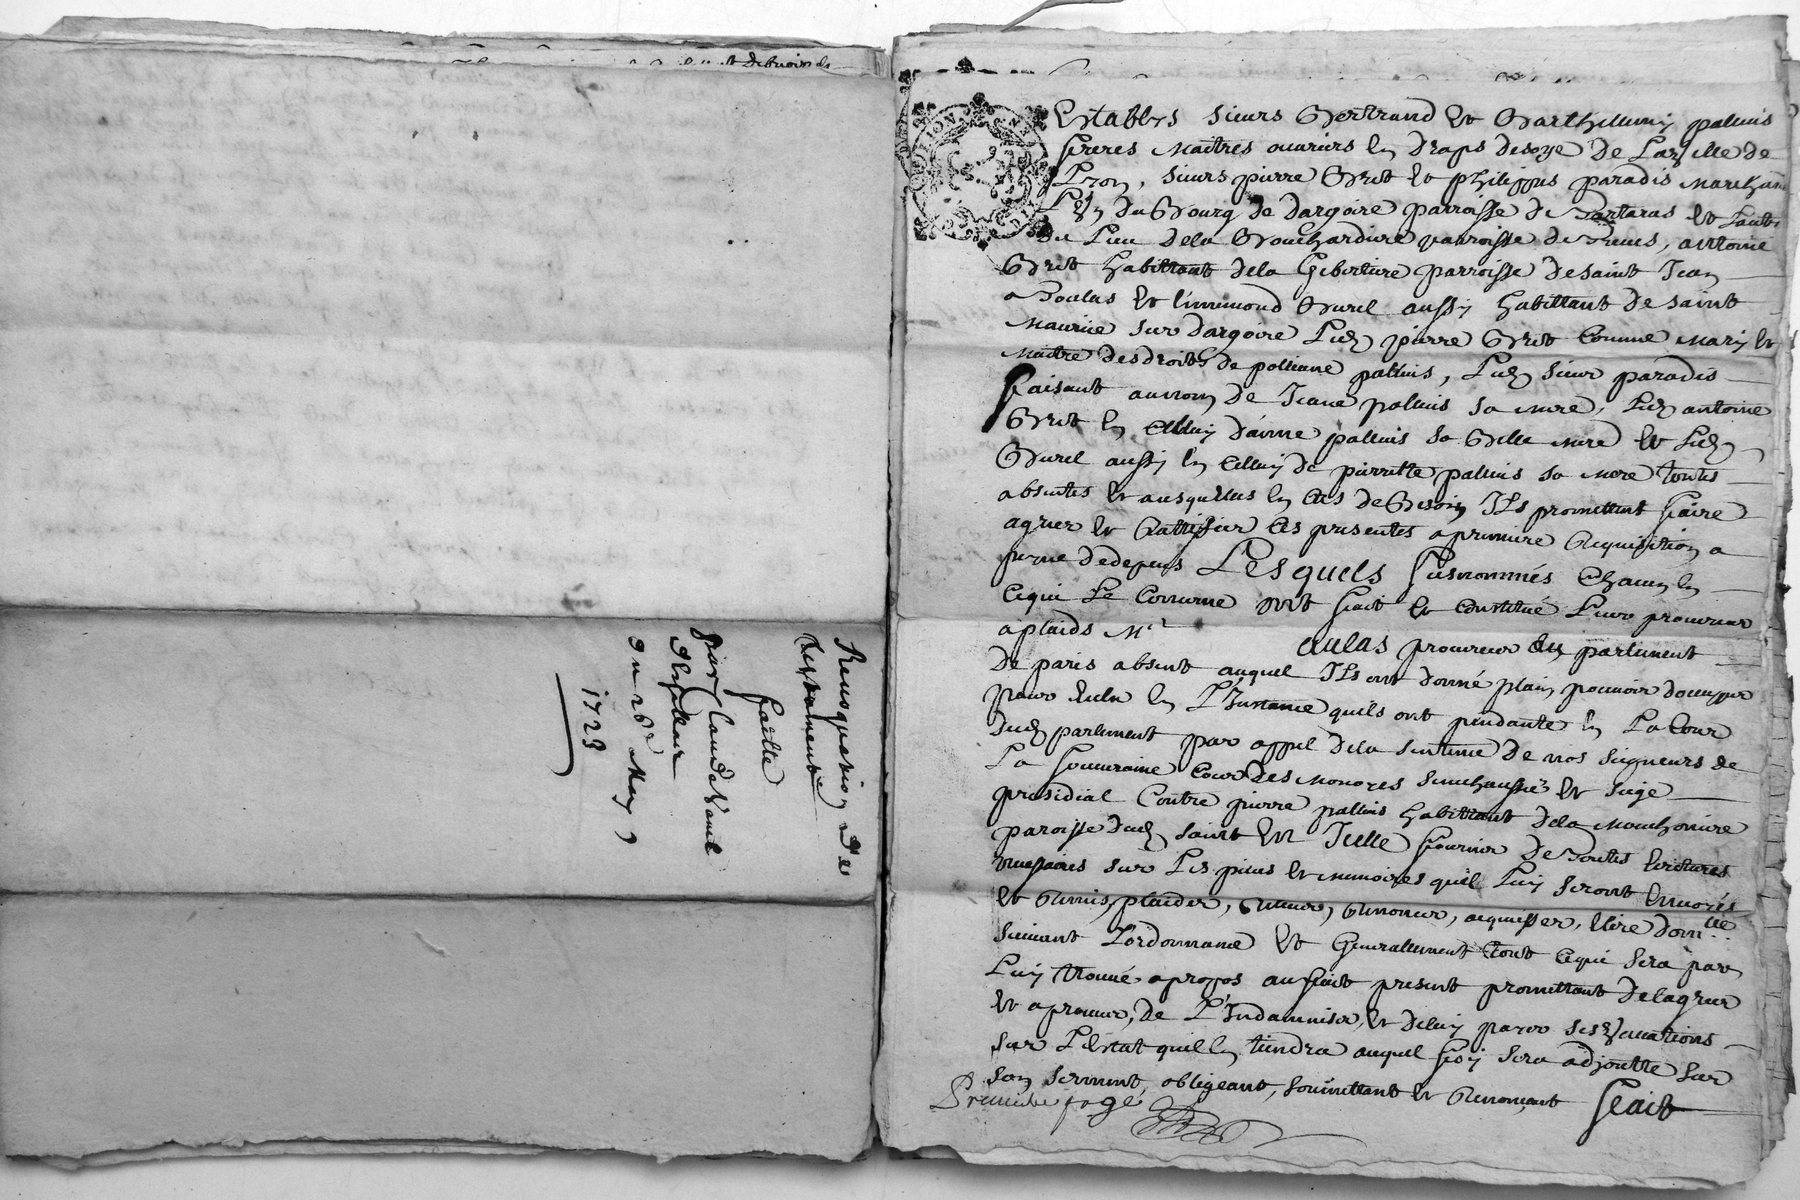 Revoquation de
testamente
faitte
par Claude Vanel
9 u 26e May
1723
Establys sieurs Bertrand et Barthellemy palluis
freres Maitres ouvriers en draps desoye de La ville de
Lyon, sieurs pierre Bret et philippes paradis Marchan
du Bourg de dargoire parroisse de Tartaras et Lautre
du Lieu dela Bouchardiere parroisse de, antoine
Bret habittant dela Giberture parroisse de saint Jean
a Toulas et Ennemond Burel aussy habittant de saint
Maurice sur dargoire Led pierre Bret comme mary et
Maitre des droits de polliane palluis, Led sieur paradis
faisant au nom de Jeane palluis sa mere, Led antoine
Bret en celluy d'anne palluis sa Belle mere et Led
Burel aussy en celluy de pierrette palluis sa mere toutes
absentes et ausquelles en cas de Besoin ILs promettent faire
agreer et rattiffier ces presentes a premiere requisition a
peyne de depens Lesquels susnommés chacun en
cequi Le concerne ont fait et constitué Leur procureur
a plaids Mr aulas procureur en parlement
De paris absent auquel ILs ont donné plain pouvoir doccupper
pour eulx en L'Instance quils ont pendante en La Cour
dud parlement par appel dela sentence de nos seigneurs de
La souveraine Cour des Monoyes senechaussée et siege
presidial Contre pierre palluis habittant dela Mouchoniere
paroisse dud saint et Icelle fournir de Toutes Ecritures
necessaires sur Les pieces et memoires quil Luy seront Envoyés
et Remis, plaider, renoncer, acquiesser, Elire domlle
suivant L'ordonnance Et Generallement tout cequi sera par
Luy trouvé apropos aufait present promettant de lagreer
et aprouver, de L'Indamniser, et deluy payer ses vacations
sur L'estat quil en tiendra auquel foy sera adjoutte sur
son serment, obligeant, soumettant et Renonceant fait
Premiere page